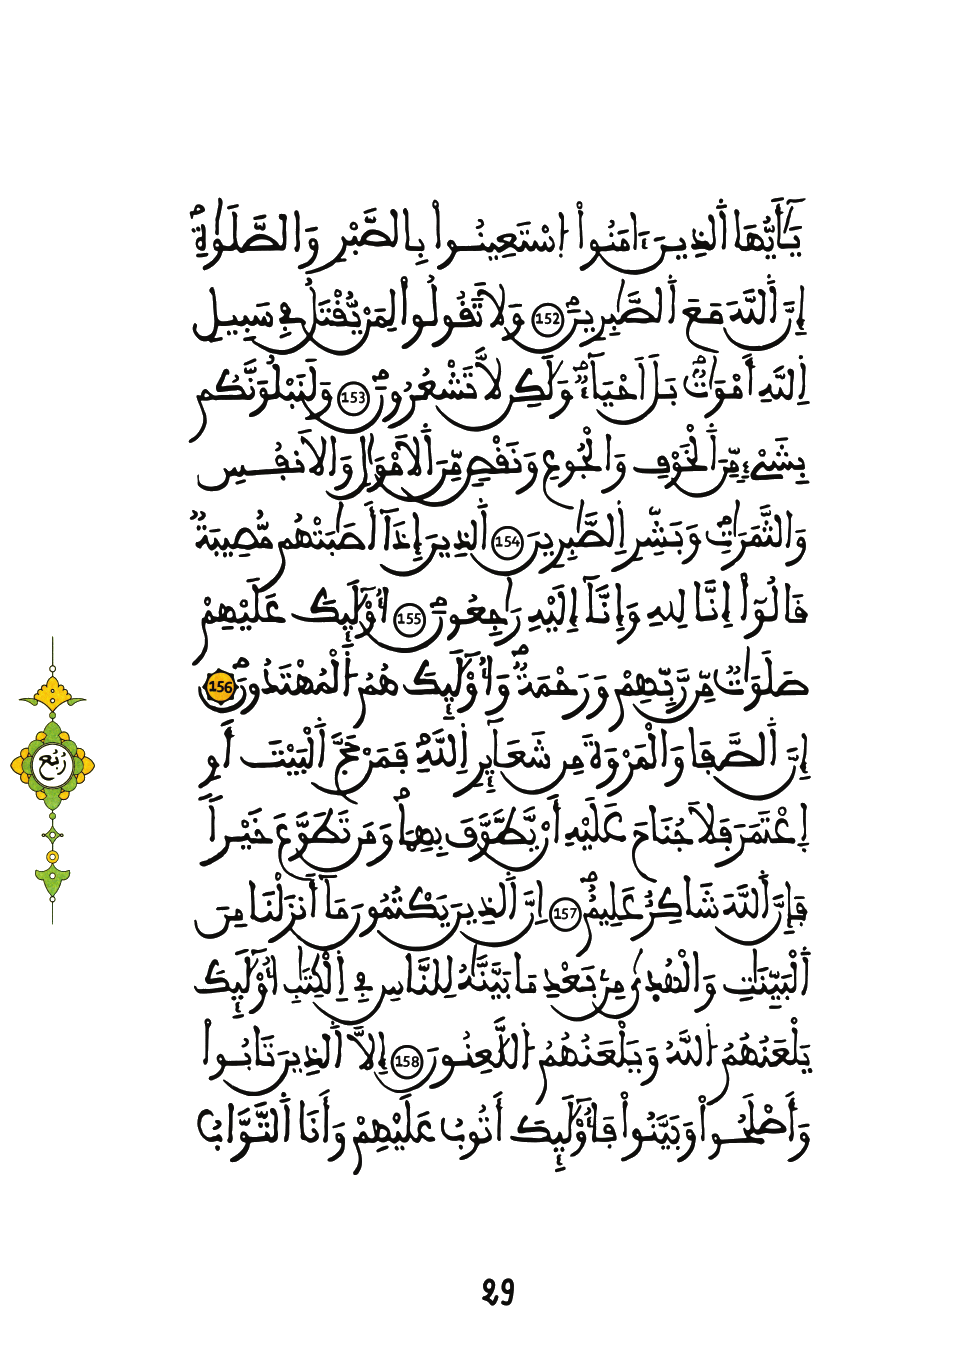 يَٰٓأَيُّهَا اَ۬لذِينَ ءَامَنُواْ اُ۪سْتَعِينُواْ بِالصَّبْرِ وَالصَّلَوٰةِۖ
إِنَّ اَ۬للَّهَ مَعَ اَ۬لصَّٰبِرِينَۖ 152 وَلَا تَقُولُواْ لِمَنْ يُّقْتَلُ فِے سَبِيلِ
اِ۬للَّهِ أَمْوَٰتُۢۖ بَلَ اَحْيَآءٞۖ وَلَٰكِن لَّا تَشْعُرُونَۖ 153 وَلَنَبْلُوَنَّكُم
بِشَےْءٖ مِّنَ اَ۬لْخَوْفِ وَالْجُوعِ وَنَقْصٖ مِّنَ اَ۬لَامْوَٰلِ وَالَانفُسِ
وَالثَّمَرَٰتِۖ وَبَشِّرِ اِ۬لصَّٰبِرِينَ 154 اَ۬لذِينَ إِذَآ أَصَٰبَتْهُم مُّصِيبَةٞ
قَالُوٓاْ إِنَّا لِلهِ وَإِنَّآ إِلَيْهِ رَٰجِعُونَۖ 155 أُوْلَٰٓئِكَ عَلَيْهِمْ
صَلَوَٰتٞ مِّن رَّبِّهِمْ وَرَحْمَةٞۖ وَأُوْلَٰٓئِكَ هُمُ اُ۬لْمُهْتَدُونَۖ 156
إِنَّ اَ۬لصَّفَا وَالْمَرْوَةَ مِن شَعَآئِرِ اِ۬للَّهِۖ فَمَنْ حَجَّ اَ۬لْبَيْتَ أَوِ
اِ۪عْتَمَرَ فَلَا جُنَاحَ عَلَيْهِ أَنْ يَّطَّوَّفَ بِهِمَاۖ وَمَن تَطَوَّعَ خَيْراٗ
فَإِنَّ اَ۬للَّهَ شَاكِرٌ عَلِيمٌۖ 157 اِنَّ اَ۬لذِينَ يَكْتُمُونَ مَآ أَنزَلْنَا مِنَ
اَ۬لْبَيِّنَٰتِ وَالْهُد۪ىٰ مِنۢ بَعْدِ مَا بَيَّنَّٰهُ لِلنَّاسِ فِے اِ۬لْكِتَٰبِ أُوْلَٰٓئِكَ
يَلْعَنُهُمُ اُ۬للَّهُ وَيَلْعَنُهُمُ اُ۬للَّٰعِنُونَ 158 إِلَّا اَ۬لذِينَ تَابُواْ
وَأَصْلَحُواْ وَبَيَّنُواْ فَأُوْلَٰٓئِكَ أَتُوبُ عَلَيْهِمْ وَأَنَا اَ۬لتَّوَّابُ
رُبُع
29